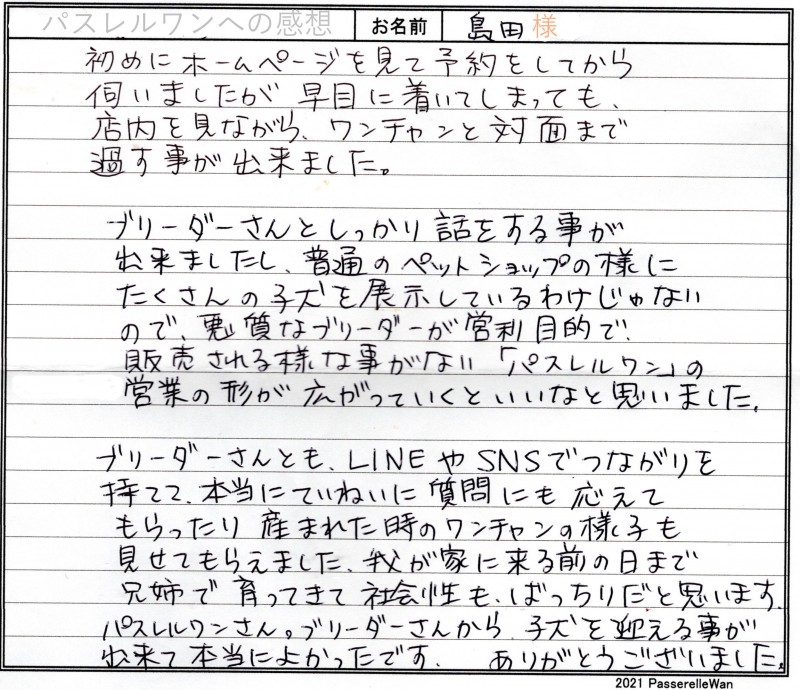 パスレルワンへの感想 お名前 島田様
初めにホームページを見て予約をしてから
伺いましたが 早目に着いてしまっても、
店内を見ながら、ワンチャンと対面まで
過す事が出来ました。
ブリーダーさんとしっかり話をする事が
出来ましたし、普通のペットショップの様に
たくさんの子犬を展示しているわけじゃない
ので、悪質なブリーダーが営利目的で
販売される様な事がない「パスレルワン」の
営業の形が広がっていくといいなと思いました。
ブリーダーさんとも、LINEやSNSでつながりを
持てて、本当にていねいに質問にも応えて
もらったり 産まれた時のワンチャンの様子も
見せてもらえました、我が家に来る前の日まで
兄姉で育ってきて社会性も、ばっちりだと思います。
パスレルワンさん。ブリーダーさんから 子犬を迎える事が
出来て本当によかったです. ありがとうございました。
2021 PasserelleWan